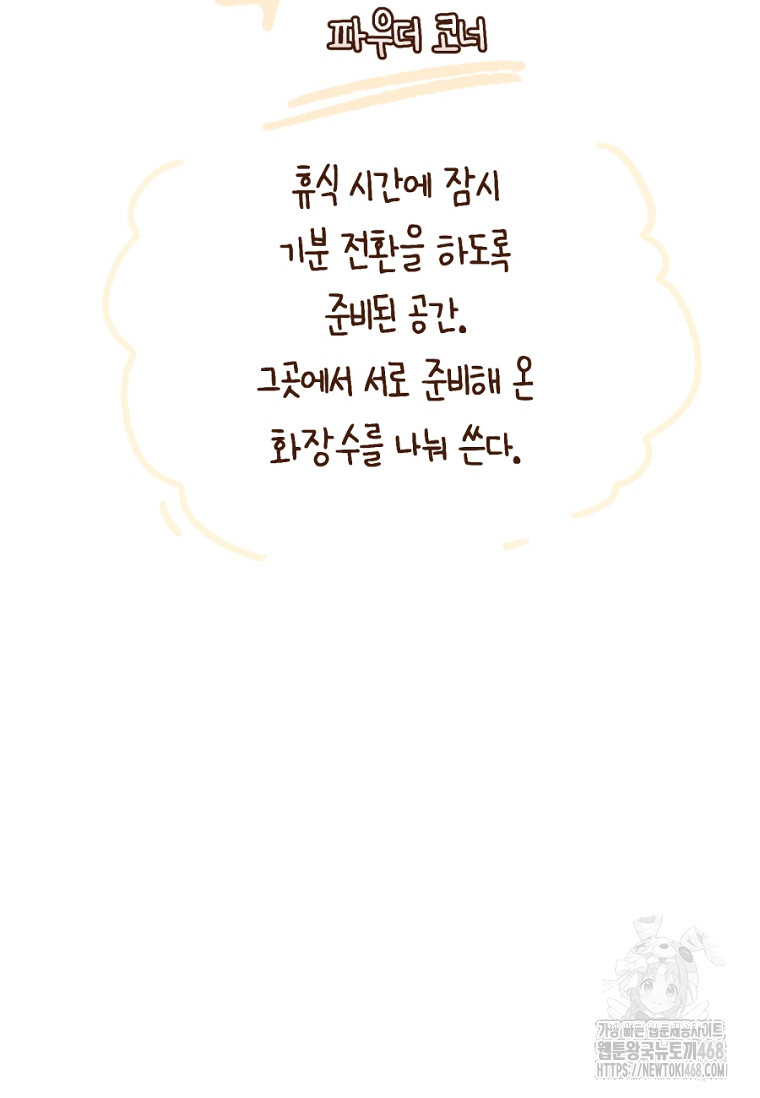 파우더 코너
휴식 시간에 잠시
기분 전환을 하도록
준비된 공간.
그곳에서 서로 준비해 온
화장수를 나눠 쓴다.
가장 빠른 웹툰제공사이트
웹툰왕국뉴토끼468
HTTPS://NEWTOKI468.COM